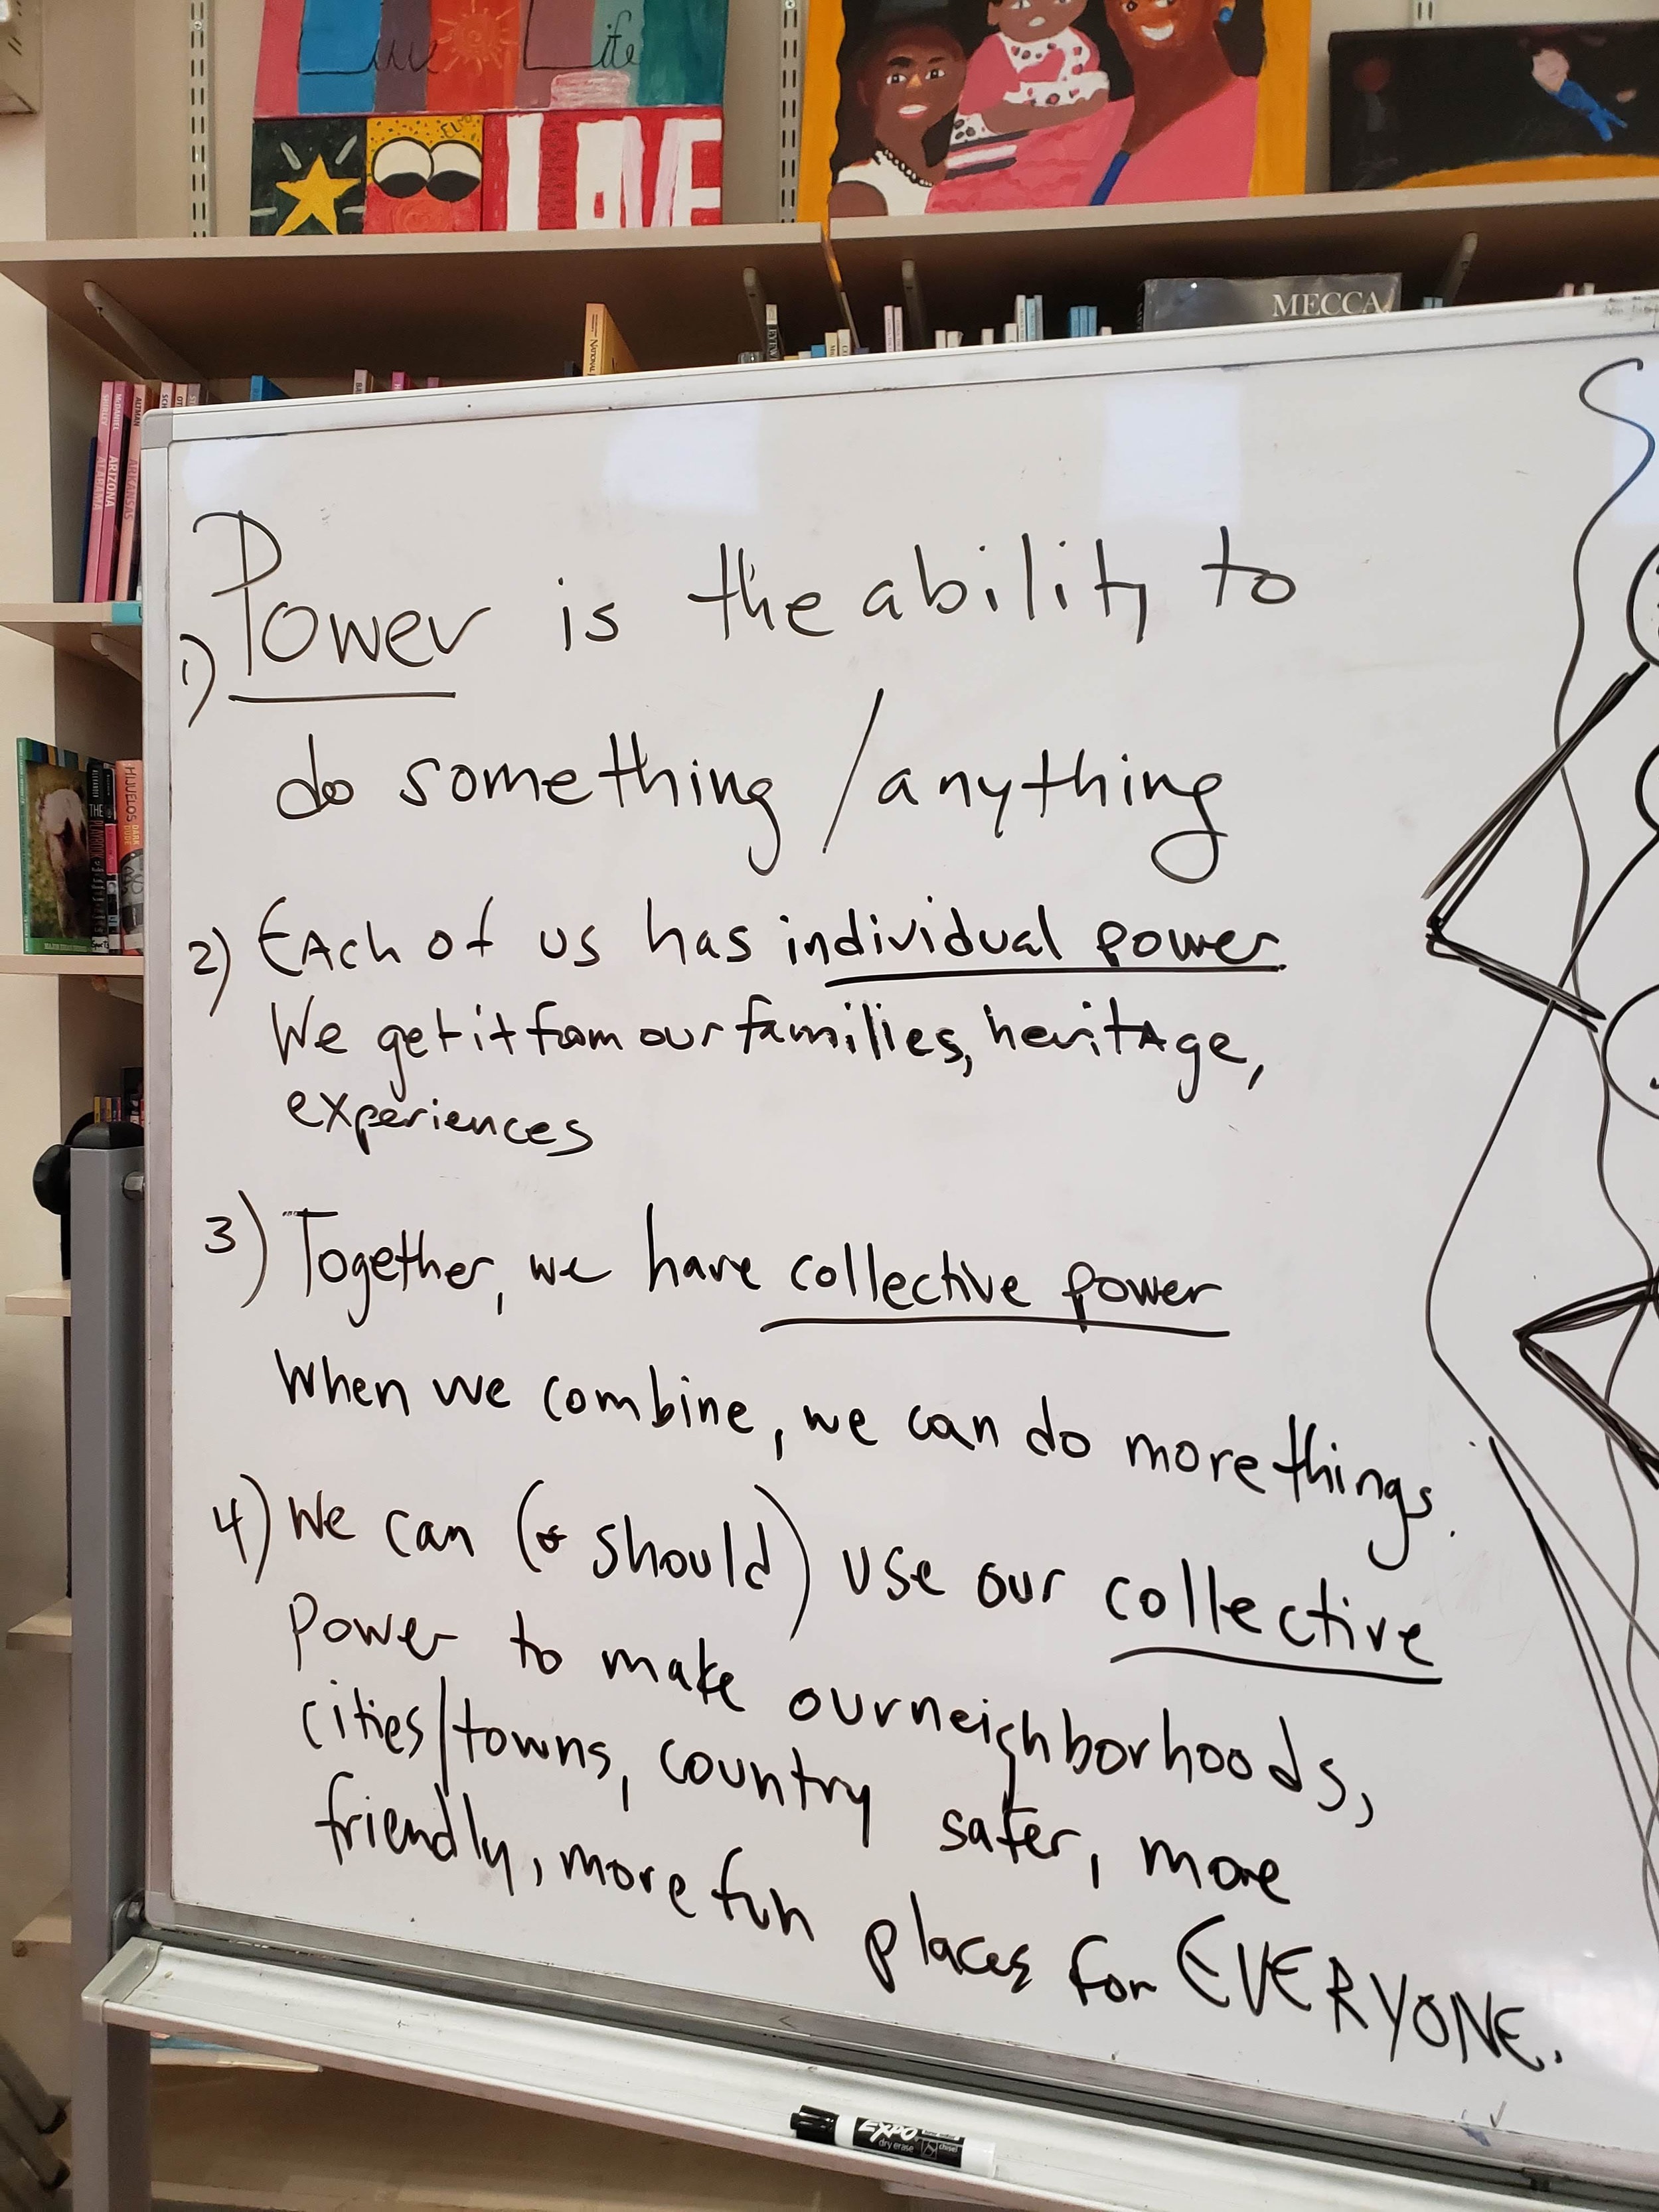 Live Life
ELMO
LOVE
MECCA
NATIONAL
SHIRLEY ALABAMA
MCDANIEL ARIZONA
ALTMAN ARKANSAS
HIJUELOS DARK DUDE
THE PLAYBOOK
1) Power is the ability to
do something / anything
2) EAch of us has individual power
We get it from our families, heritAge,
experiences
3) Together, we have collective power
When we combine, we can do more things.
4) We can (& should) use our collective
Power to make our neighborhoods,
cities/towns, country safer, more
friendly, more fun places for EVERYONE.
EXPO
dry erase
chisel